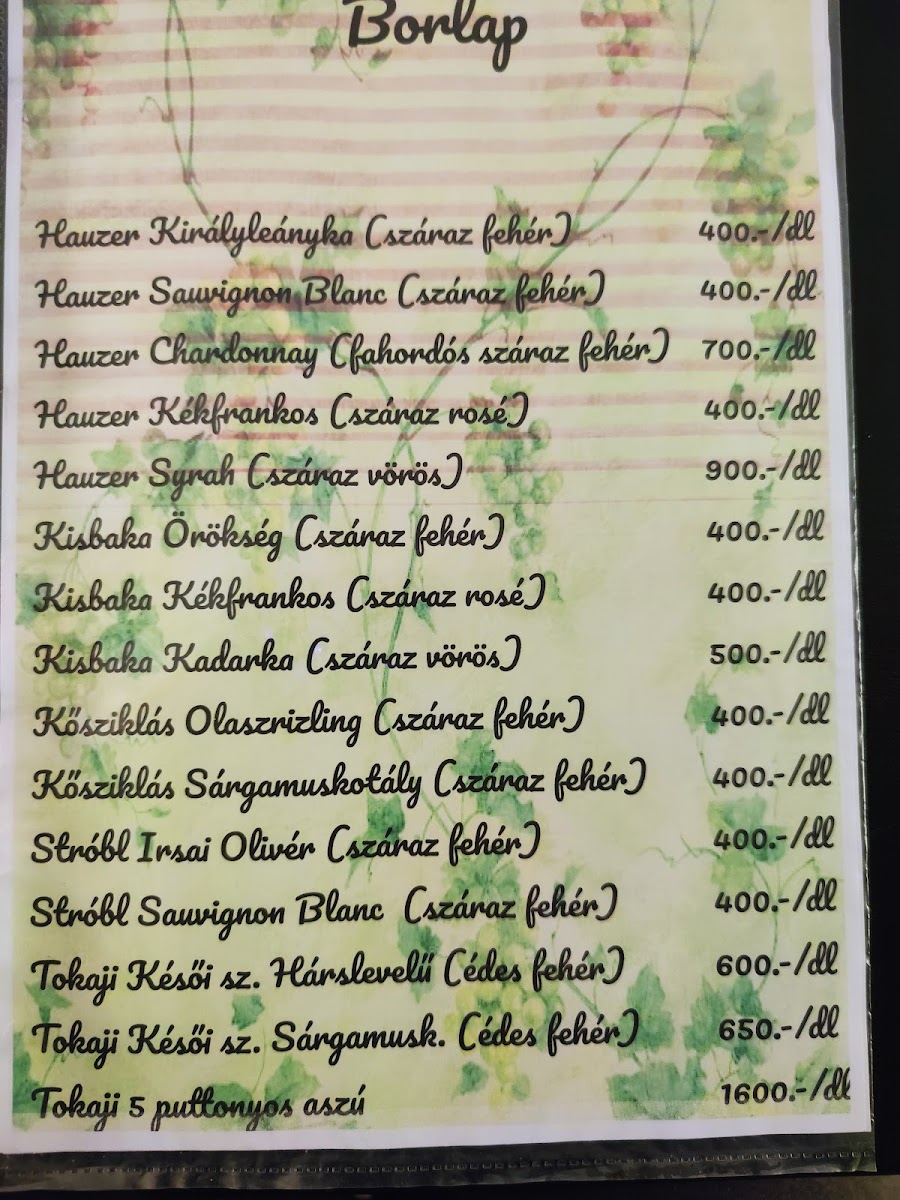 Borlap
Hauzer Királyleányka (száraz fehér) 400.-/dl
Hauzer Sauvignon Blanc (száraz fehér) 400.-/dl
Hauzer Chardonnay (fahordós száraz fehér) 700.-/dl
Hauzer Kékfrankos (száraz rosé) 400.-/dl
Hauzer Syrah (száraz vörös) 900.-/dl
Kisbaka Örökség (száraz fehér) 400.-/dl
Kisbaka Kékfrankos (száraz rosé) 400.-/dl
Kisbaka Kadarka (száraz vörös) 500.-/dl
Kősziklás Olaszrizling (száraz fehér) 400.-/dl
Kősziklás Sárgamuskotály (száraz fehér) 400.-/dl
Stróbl Irsai Olivér (száraz fehér) 400.-/dl
Stróbl Sauvignon Blanc (száraz fehér) 400.-/dl
Tokaji Késői sz. Hárslevelű (édes fehér) 600.-/dl
Tokaji Késői sz. Sárgamusk. (édes fehér) 650.-/dl
Tokaji 5 puttonyos aszú 1600.-/dl